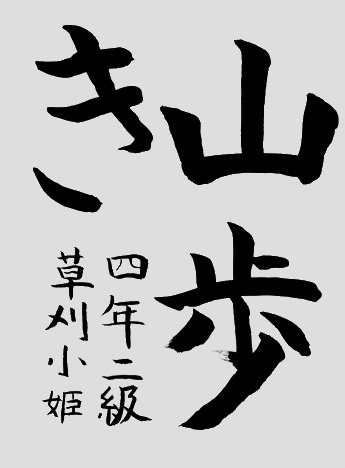 山歩
き
四年二級
草刈小姫